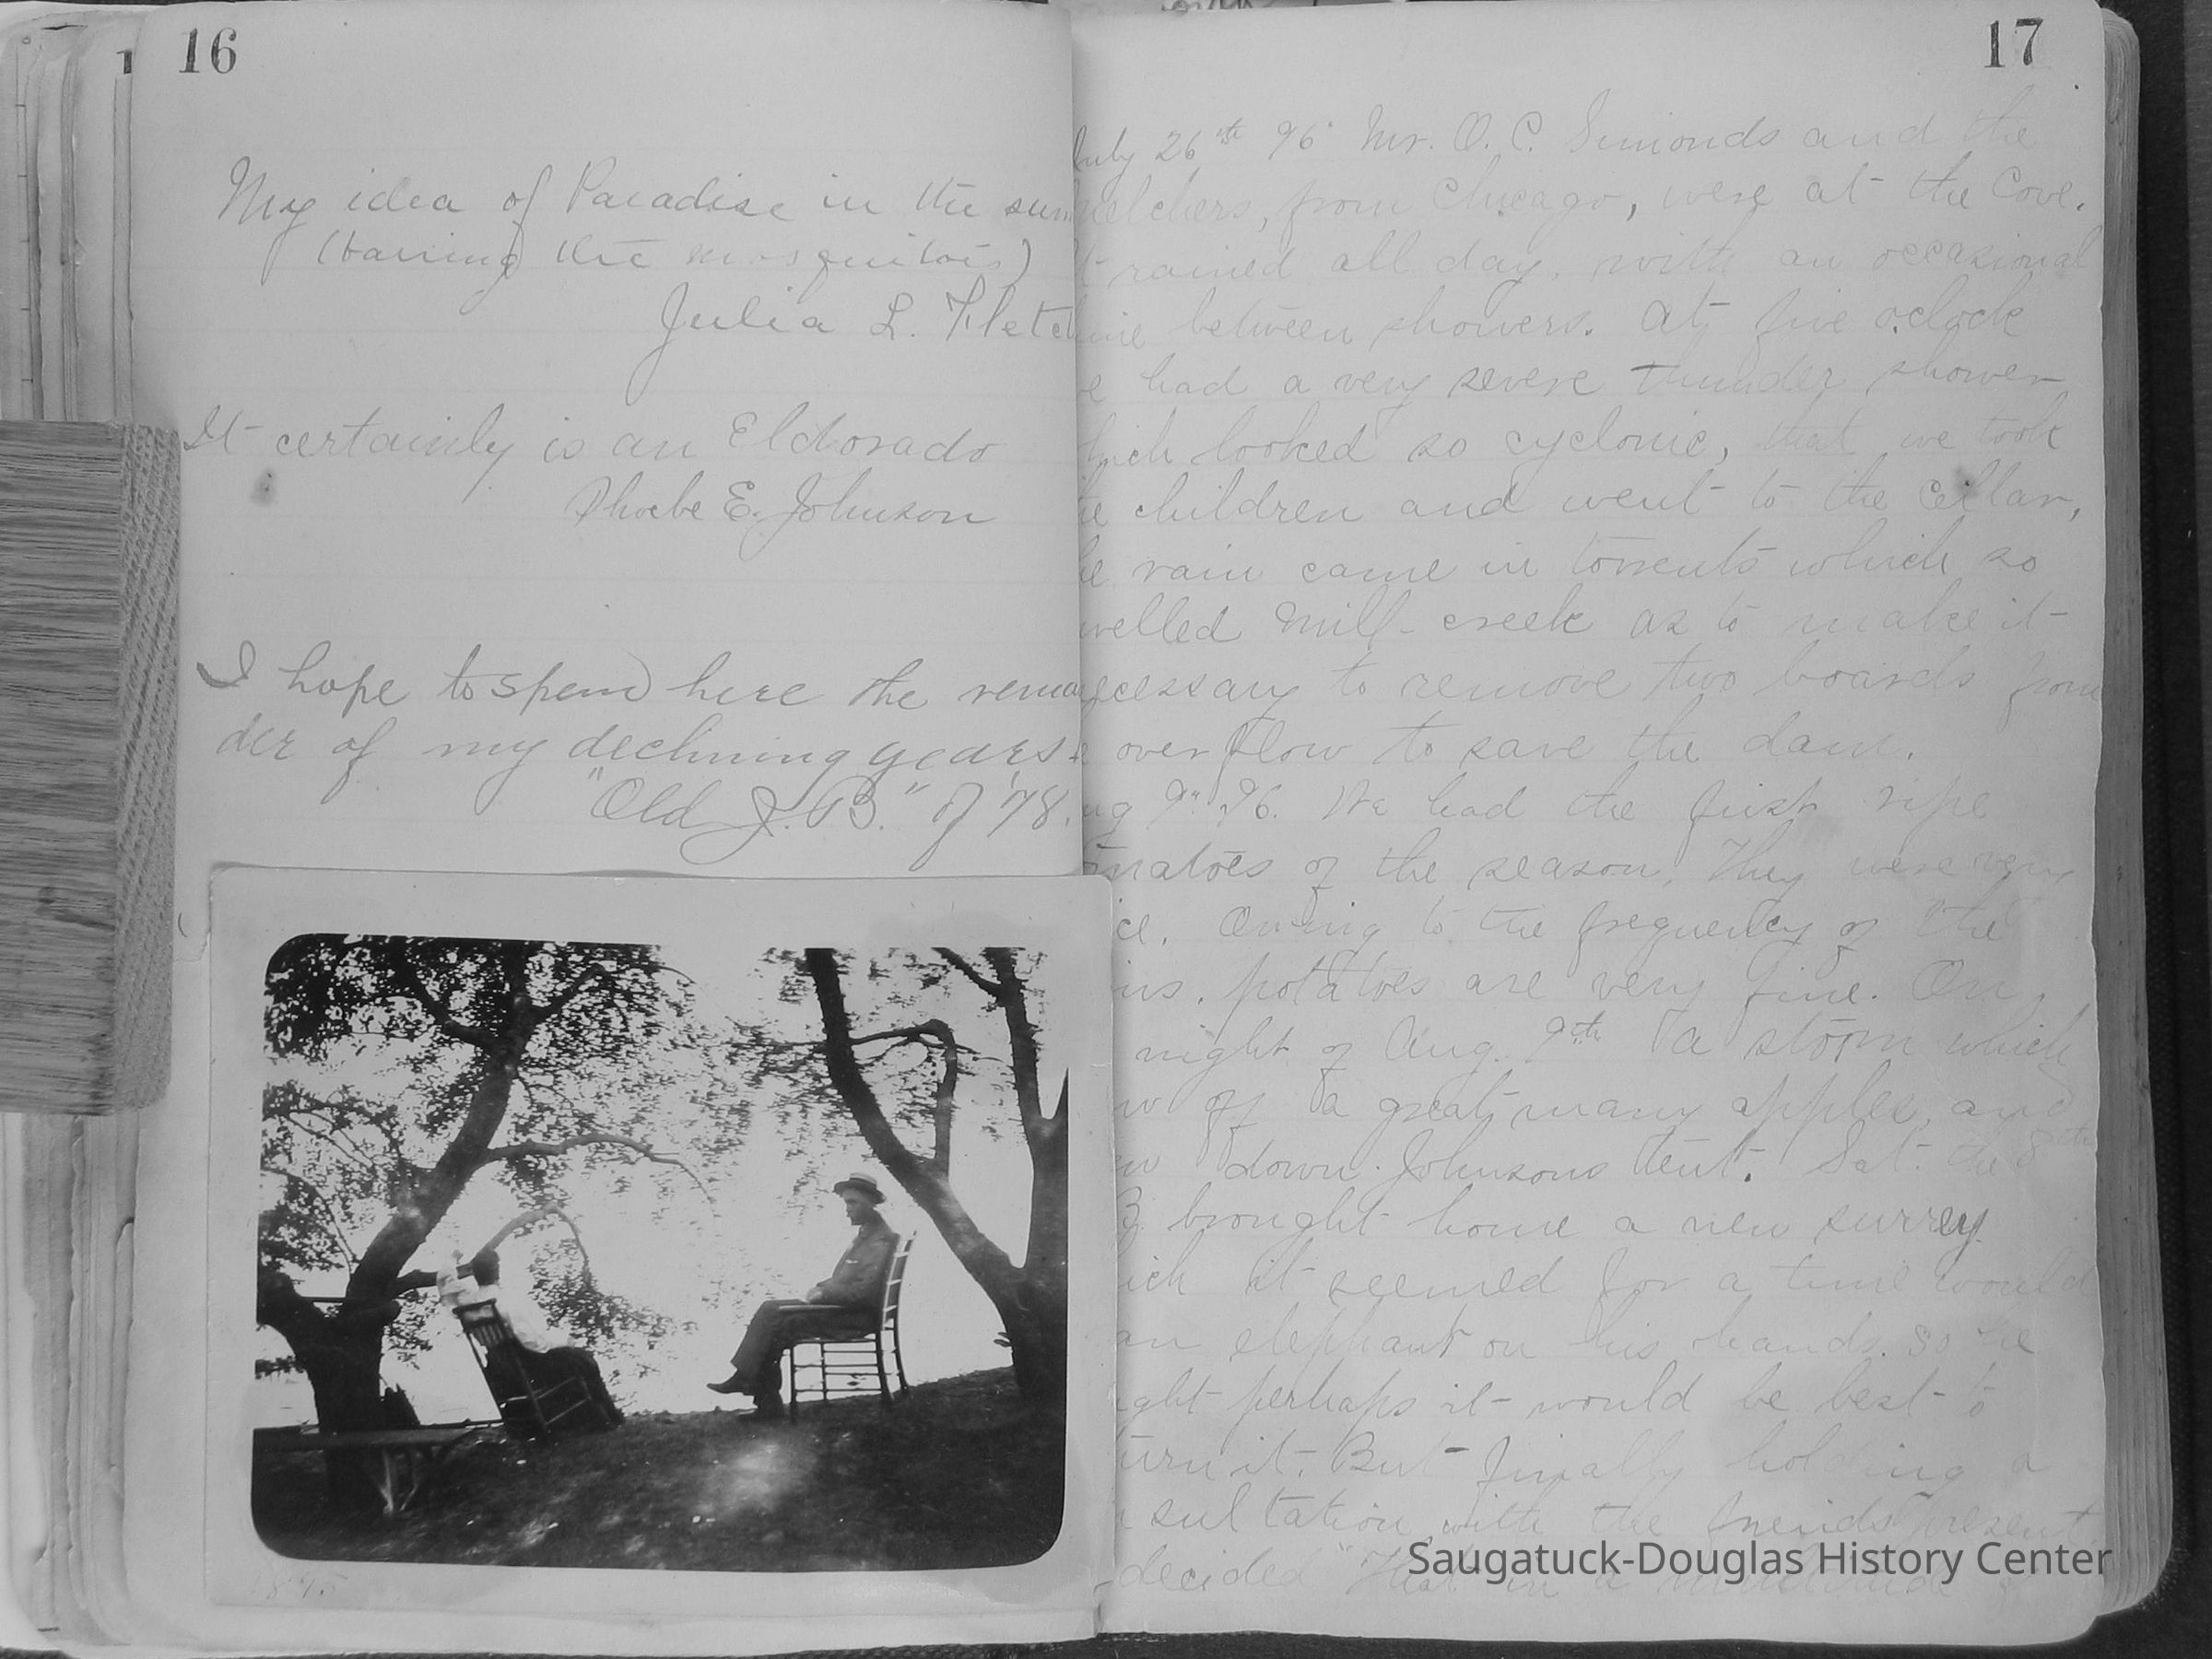 16
My idea of Paradise in the sum
(barring the mosquitois)
Julia L. Fletch
It certainly is an Eldorado
Phoebe E. Johnson
I hope to spend here the remai
der of my declining years.
"Old J. B." of '78.
1895
17
July 26th 96 Mr. O. C. Simonds and the
elchers, from Chicago, were at the Cove.
t rained all day, with an occasional
ine between showers. At five oclock
e had a very severe thunder shower
hich looked so cyclonic, that we took
he children and went to the cellar,
he rain came in torrents which so
welled Mill-creek as to make it
ecessary to remove two boards from
e over flow to save the dam.
ug 9" 96. We had the first ripe
matoes of the season. They were very
ice. Owing to the frequency of the
ins, potatoes are very fine. On
night of Aug. 9th a storm which
w off a great many apples, and
w down Johnsons tent. Sat. the 8th
B brought home a new surrey
ich it seemed for a time would
an elephant on his hands. so he
ught perhaps it would be best to
turn it. But finally holding a
sultation with the friends present
decided "That in a
Saugatuck-Douglas History Center